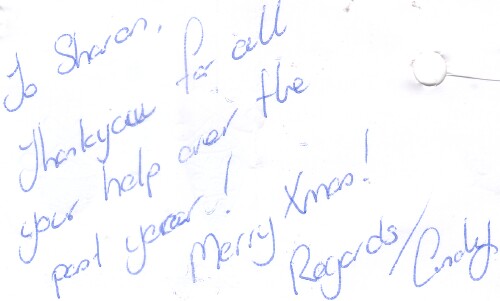 To Sharon,
Thankyou for all
your help over the
past year!
Merry Xmas!
Regards/Cindy